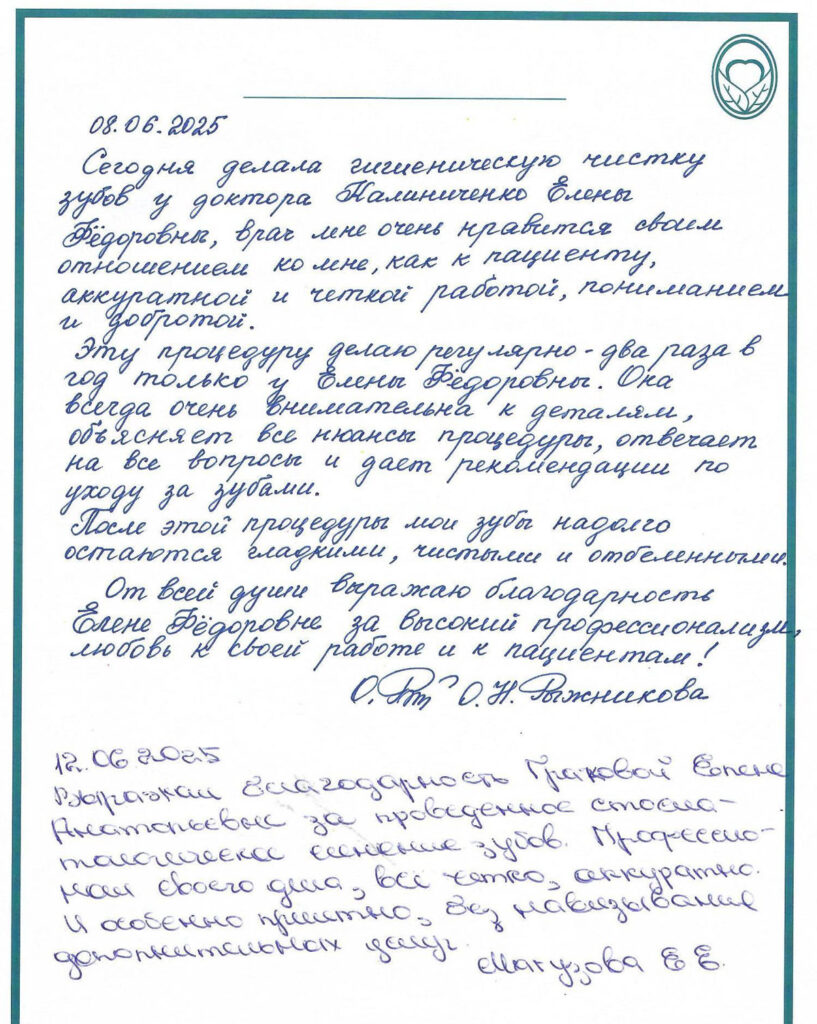 08.06.2025
Сегодня делала гигиеническую чистку
зубов у доктора Калиниченко Елены
Фёдоровны, врач мне очень нравится своим
отношением ко мне, как к пациенту,
аккуратной и четкой работой, пониманием
и добротой.
Эту процедуру делаю регулярно - два раза в
год только у Елены Фёдоровны. Она
всегда очень внимательна к деталям,
объясняет все нюансы процедуры, отвечает
на все вопросы и дает рекомендации по
уходу за зубами.
После этой процедуры мои зубы надолго
остаются гладкими, чистыми и отбеленными.
От всей души выражаю благодарность
Елене Фёдоровне за высокий профессионализм,
любовь к своей работе и к пациентам!
О. Н. Рыжникова
12.06.2025
Выражаю благодарность Граковой Елене
Анатольевне за проведенное стома-
тологическое лечение зубов. Професио-
нал своего дела, все четко, аккуратно.
И особенно приятно, без навязывания
дополнительных услуг.
Е Е.